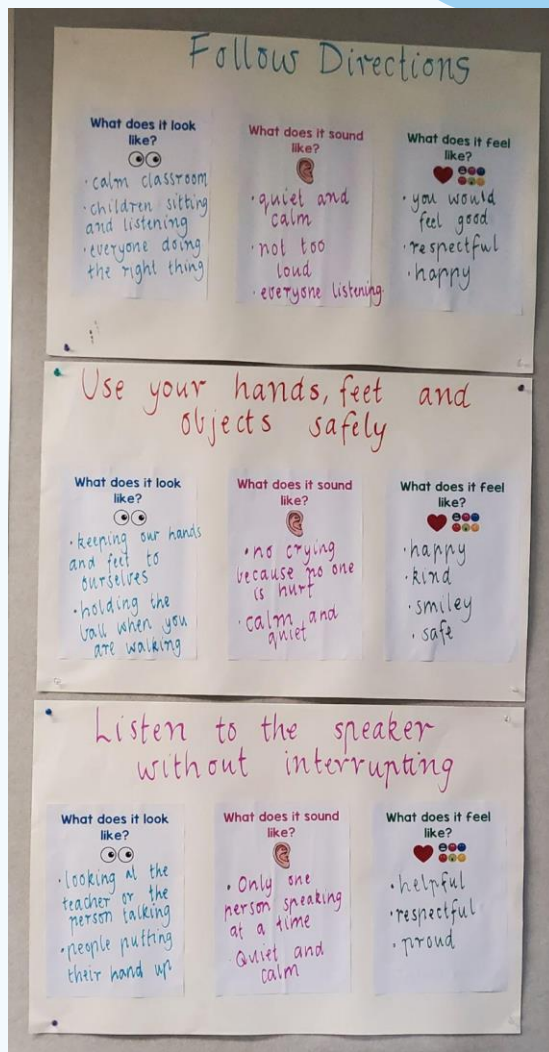 Follow Directions
What does it look
like?
· calm classroom
· children sitting
and listening
· everyone doing
the right thing
What does it sound
like?
· quiet and
calm
· not too
loud
· everyone listening
What does it feel
like?
· you would
feel good
· respectful
· happy
Use your hands, feet and
objects safely
What does it look
like?
· keeping our hands
and feet to
ourselves
· holding the
ball when you
are walking
What does it sound
like?
· no crying
because no one
is hurt
· calm and
quiet
What does it feel
like?
· happy
· kind
· smiley
· safe
Listen to the speaker
without interrupting
What does it look
like?
· looking at the
teacher or the
person talking
· people putting
their hand up
What does it sound
like?
· Only one
person speaking
at a time
· Quiet and
calm
What does it feel
like?
· helpful
· respectful
· proud